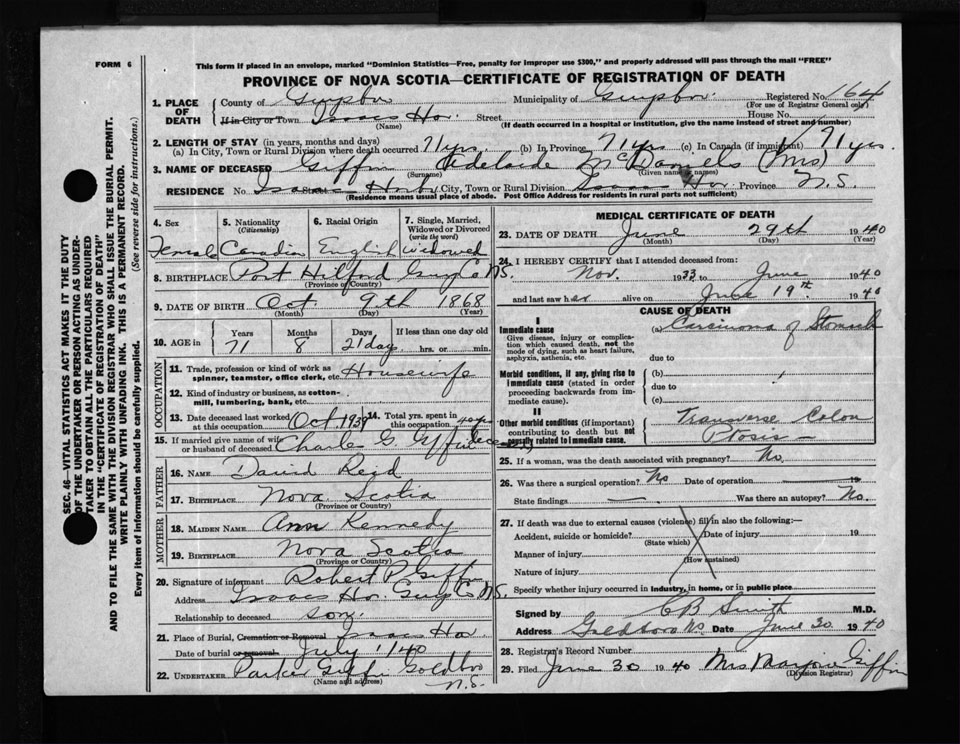 FORM 6
This form if placed in an envelope, marked "Dominion Statistics—Free, penalty for improper use $300," and properly addressed will pass through the mail "FREE"
PROVINCE OF NOVA SCOTIA—CERTIFICATE OF REGISTRATION OF DEATH
SEC. 46—VITAL STATISTICS ACT MAKES IT THE DUTY
OF THE UNDERTAKER OR PERSON ACTING AS UNDER-
TAKER TO OBTAIN ALL THE PARTICULARS REQUIRED
IN THE "CERTIFICATE OF REGISTRATION OF DEATH"
AND TO FILE THE SAME WITH THE DIVISION REGISTRAR WHO SHALL ISSUE THE BURIAL PERMIT.
WRITE PLAINLY WITH UNFADING INK. THIS IS A PERMANENT RECORD.
Every item of information should be carefully supplied. (See reverse side for instructions.)
1. PLACE OF DEATH
County of Guysboro Municipality of Guysboro. Registered No. 164
(For use of Registrar General only)
If in City or Town Isaacs Har. Street House No.
(Name) (If death occurred in a hospital or institution, give the name instead of street and number)
2. LENGTH OF STAY (in years, months and days)
(a) In City, Town or Rural Division where death occurred 71 yrs. (b) In Province 71 yrs (c) In Canada (if immigrant) 71 yrs.
3. NAME OF DECEASED Giffin Adelaide McDaniels (Mrs)
(Surname) (Given name or names)
RESIDENCE No. Isaacs Harbor City, Town or Rural Division Isaacs Har. Province N.S.
(Residence means usual place of abode. Post Office Address for residents in rural parts not sufficient)
4. Sex 5. Nationality (Citizenship) 6. Racial Origin 7. Single, Married, Widowed or Divorced (write the word)
Female Canadian English Widowed
8. BIRTHPLACE Port Hilford Guy Co N.S.
(Province or Country)
9. DATE OF BIRTH Oct. 9th 1868
(Month) (Day) (Year)
10. AGE in Years Months Days If less than one day old
71 8 21 day. hrs. or min.
OCCUPATION
11. Trade, profession or kind of work as spinner, teamster, office clerk, etc. Housewife
12. Kind of industry or business, as cotton-mill, lumbering, bank, etc.
13. Date deceased last worked at this occupation Oct 1939 14. Total yrs. spent in this occupation
15. If married give name of wife or husband of deceased Charles G. Giffin
FATHER
16. NAME David Reid
17. BIRTHPLACE Nova Scotia
(Province or Country)
MOTHER
18. MAIDEN NAME Ann Kennedy
19. BIRTHPLACE Nova Scotia
(Province or Country)
20. Signature of informant Robert P. Giffin
Address Isaacs Har. Guy Co N.S.
Relationship to deceased son.
21. Place of Burial, Cremation or Removal Isaacs Har.
Date of burial or removal July 1/40
22. UNDERTAKER Parker Giffin Goldboro
(Name and address) N.S.
MEDICAL CERTIFICATE OF DEATH
23. DATE OF DEATH June 29th 1940
(Month) (Day) (Year)
24. I HEREBY CERTIFY that I attended deceased from:
Nov. 1933 to June 1940
and last saw her alive on June 19th. 1940
CAUSE OF DEATH
I
Immediate cause (a) Carsinoma of Stomach
Give disease, injury or complication which caused death, not the mode of dying, such as heart failure, asphyxia, asthenia, etc. due to
Morbid conditions, if any, giving rise to immediate cause (stated in order proceeding backwards from immediate cause). (b)
due to
(c)
II
Other morbid conditions (if important) contributing to death but not causally related to immediate cause. Transverse Colon
Ptosis —
25. If a woman, was the death associated with pregnancy? No.
26. Was there a surgical operation? No Date of operation — 19
State findings — Was there an autopsy? No.
27. If death was due to external causes (violence) fill in also the following:—
Accident, suicide or homicide? Date of injury 19
(State which)
Manner of injury
(How sustained)
Nature of injury
Specify whether injury occurred in industry, in home, or in public place
Signed by C B Smith M.D.
Address Goldboro NS Date June 30 1940
28. Registrar's Record Number
29. Filed June 30 1940 Mrs Marjorie Giffin
(Division Registrar)